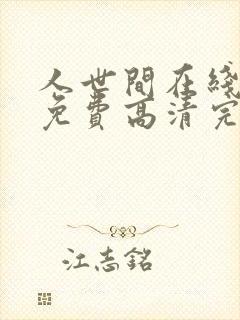 人世間在綫
免費高清完
江志銘